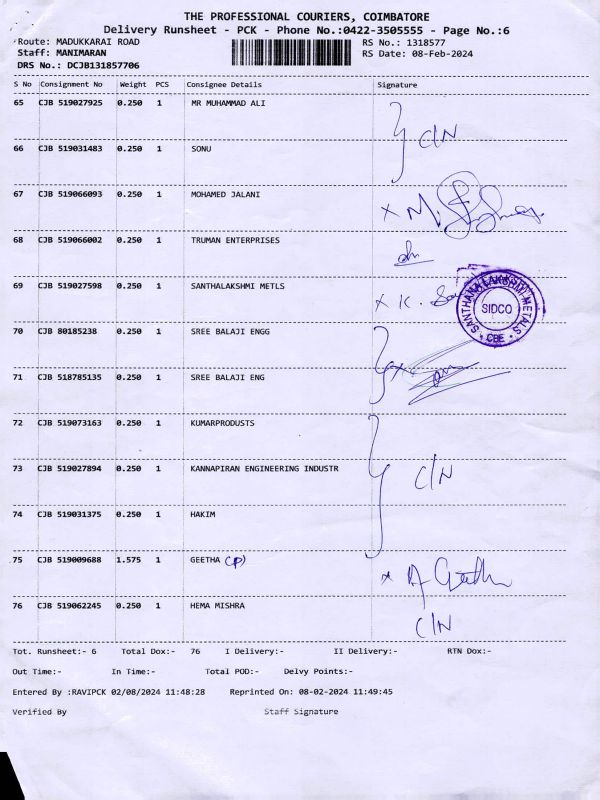 THE PROFESSIONAL COURIERS, COIMBATORE
Delivery Runsheet - PCK - Phone No.:0422-3505555 - Page No.:6
Route: MADUKKARAI ROAD RS No.: 1318577
Staff: MANIMARAN RS Date: 08-Feb-2024
DRS No.: DCJB131857706
S No Consignment No Weight PCS Consignee Details Signature
65 CJB 519027925 0.250 1 MR MUHAMMAD ALI
C/N
66 CJB 519031483 0.250 1 SONU
67 CJB 519066093 0.250 1 MOHAMED JALANI
x M.
68 CJB 519066002 0.250 1 TRUMAN ENTERPRISES
69 CJB 519027598 0.250 1 SANTHALAKSHMI METLS
x K.
SANTHANALAKSHMI METALS
SIDCO
CBE
70 CJB 80185238 0.250 1 SREE BALAJI ENGG
x
71 CJB 518785135 0.250 1 SREE BALAJI ENG
72 CJB 519073163 0.250 1 KUMARPRODUSTS
73 CJB 519027894 0.250 1 KANNAPIRAN ENGINEERING INDUSTR
C/N
74 CJB 519031375 0.250 1 HAKIM
75 CJB 519009688 1.575 1 GEETHA (P)
x A Geetha
76 CJB 519062245 0.250 1 HEMA MISHRA
C/N
Tot. Runsheet:- 6 Total Dox:- 76 I Delivery:- II Delivery:- RTN Dox:-
Out Time:- In Time:- Total POD:- Delvy Points:-
Entered By :RAVIPCK 02/08/2024 11:48:28 Reprinted On: 08-02-2024 11:49:45
Verified By Staff Signature